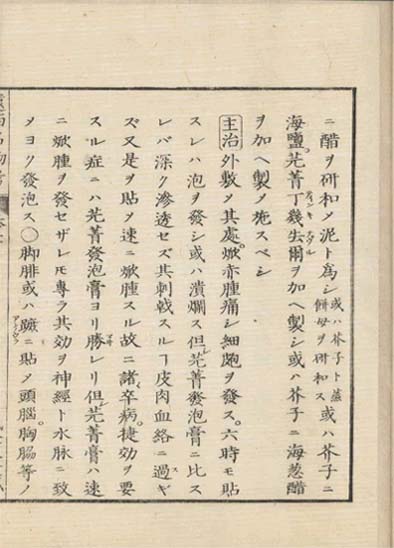 ニ醋ヲ研和メ泥ト爲シ或ハ芥子ト蒸餅母ヲ研和ス或ハ芥子ニ
海鹽。芫菁丁幾去爾ヲ加ヘ製シ或ハ芥子ニ海葱醋
ヲ加ヘ製メ施スベシ
主治 外敷メ其處。焮赤腫痛シ細皰ヲ發ス。六時モ貼
スレハ泡ヲ發シ或ハ潰爛ス但芫菁發泡膏ニ比ス
レバ深ク滲透セズ其刺戟スルヿ皮肉血絡ニ過ギ
ズ又是ヲ貼メ速ニ焮腫スル故ニ諸卒病。捷効ヲ要
スル症ニハ芫菁發泡膏ヨリ勝レリ但芫菁膏ハ速
ニ焮腫ヲ發セザレ𪜈專ラ其効ヲ神經ト水脉ニ致
メヨク發泡ス〇脚腓或ハ蹠ニ貼メ頭腦。胸脇等ノ